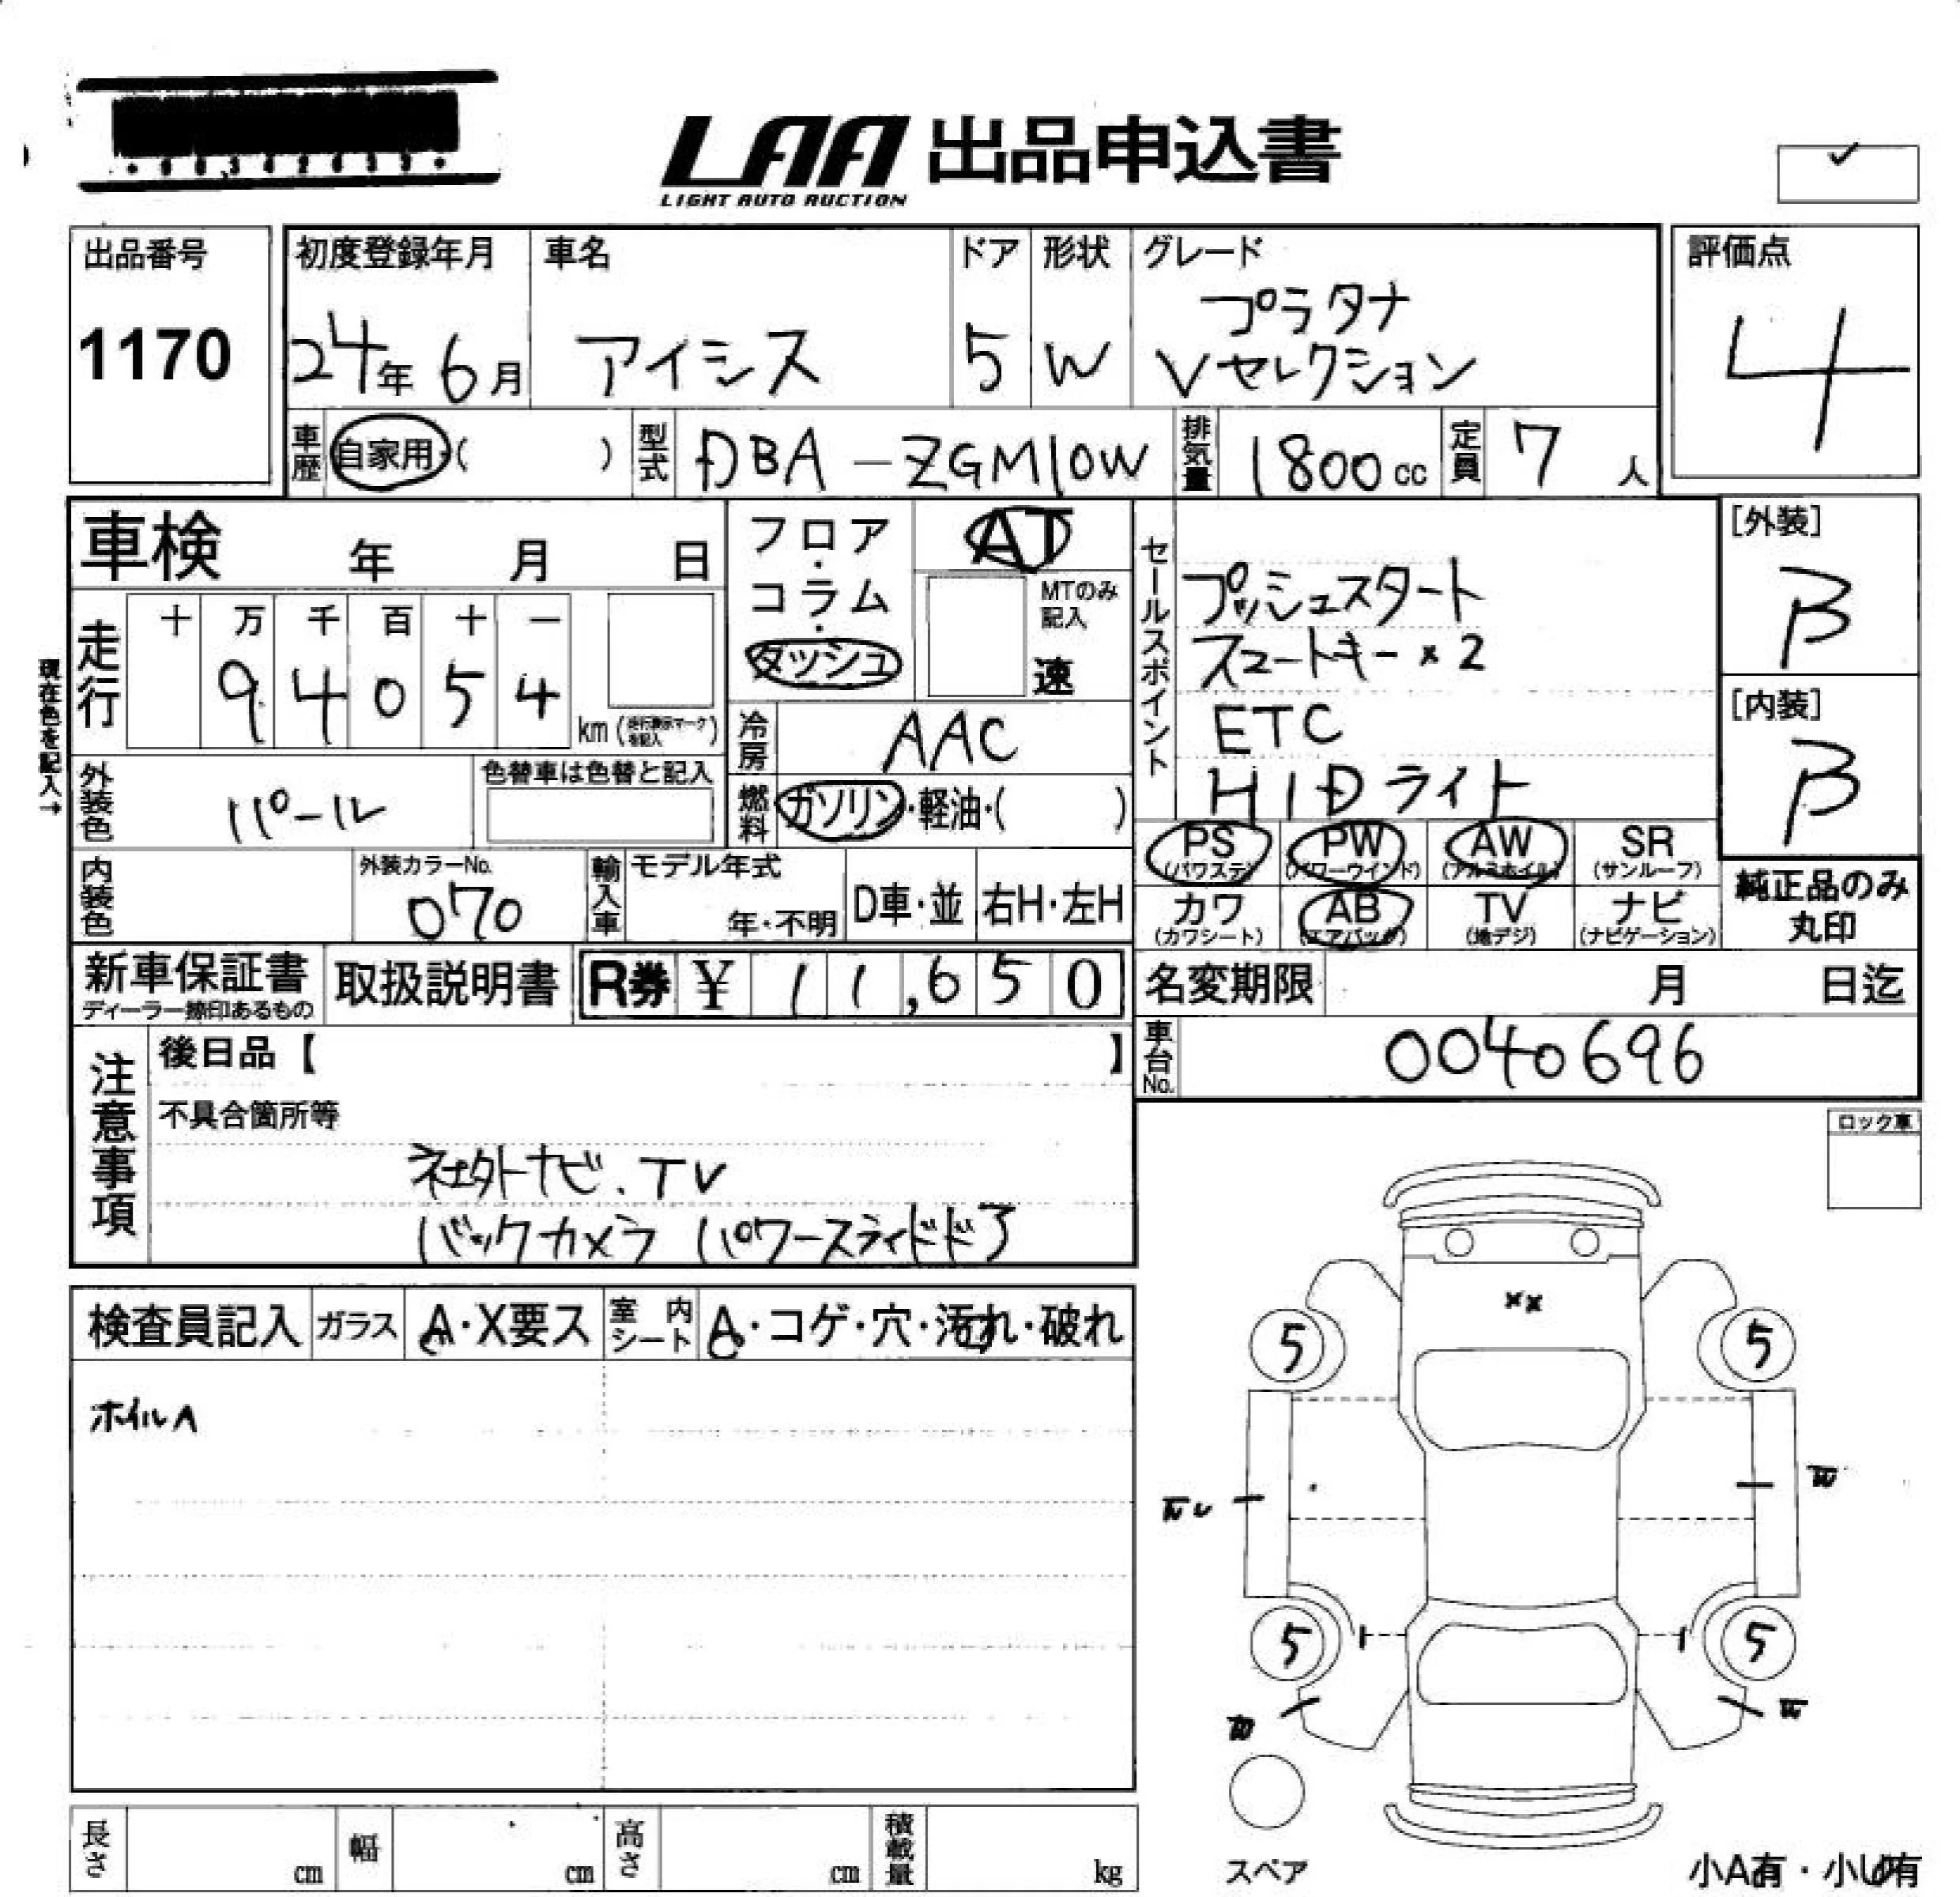 LAA 出品申込書
LIGHT AUTO AUCTION
出品番号
1170
初度登録年月
24年 6月
車名
アイシス
ドア
5
形状
W
グレード
プラタナ
Vセレクション
評価点
4
車歴 自家用・( )
型式 DBA-ZGM10W
排気量 1800cc
定員 7人
車検 年 月 日
フロア・コラム・ダッシュ
AT
MTのみ記入
速
走行
十 万 千 百 十 一
9 4 0 5 4
km(走行表示マークを記入)
現在色を記入→
冷房 AAC
外装色 パール
色替車は色替と記入
燃料 ガソリン・軽油・( )
内装色
外装カラーNo.
070
輸入車
モデル年式
年・不明
D車・並
右H・左H
セールスポイント
プッシュスタート
スマートキー×2
ETC
HIDライト
[外装]
B
[内装]
B
PS (パワステ)
PW (パワーウインド)
AW (アルミホイル)
SR (サンルーフ)
カワ (カワシート)
AB (エアバッグ)
TV (地デジ)
ナビ (ナビゲーション)
純正品のみ
丸印
新車保証書
ディーラー捺印あるもの
取扱説明書
R券 ¥ 11,650
名変期限 月 日迄
車台No. 0040696
注意事項
後日品【 】
不具合箇所等
社外ナビ.TV
バックカメラ パワースライドドア
ロック車
検査員記入
ガラス A・X要ス
室内シート A・コゲ・穴・汚れ・破れ
ホイルA
xx
5
5
5
5
スペア
長さ cm
幅 cm
高さ cm
積載量 kg
小A有・小U有